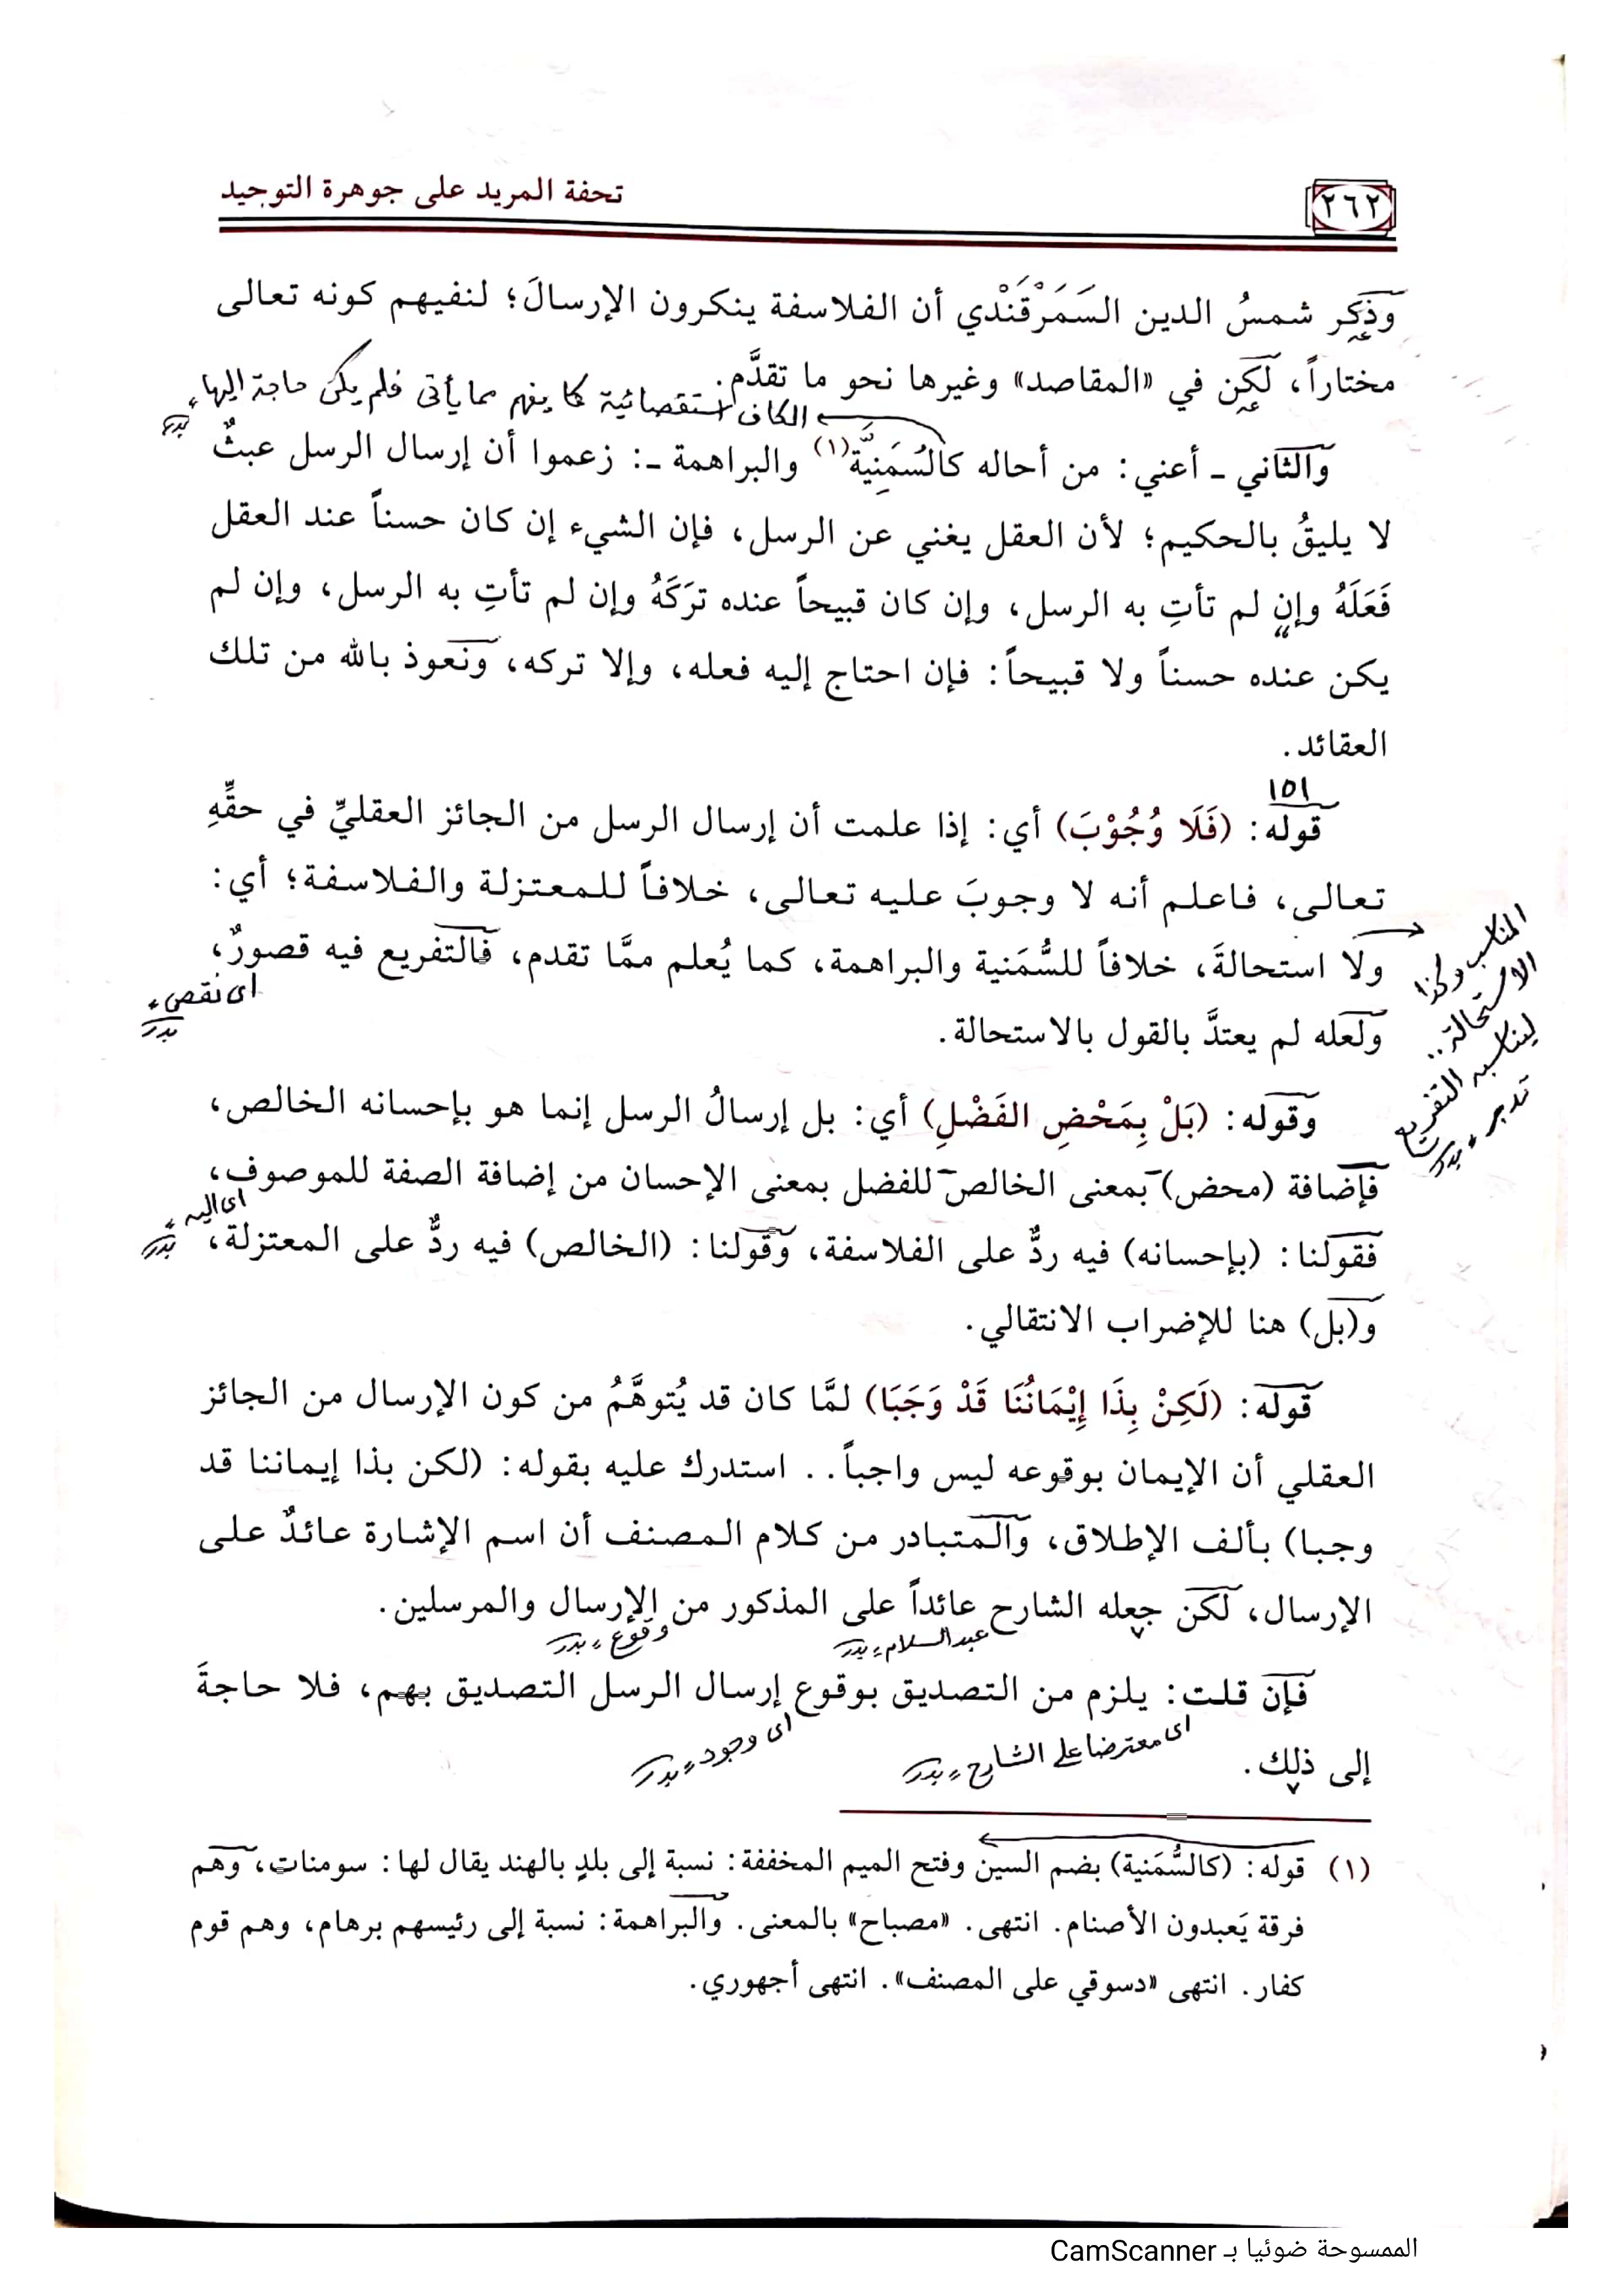 ٢٦٢
تحفة المريد على جوهرة التوحيد
وذكر شمسُ الدين السَمَرْقَنْدي أن الفلاسفة ينكرون الإرسالَ؛ لنفيهم كونه تعالى
مختاراً، لكن في «المقاصد» وغيرها نحو ما تقدَّم.
الكاف استقصائية كما يفهم مما يأتى فلم يكن حاجة اليها
بدر
والثاني ـ أعني: من أحاله كالسُمَنِيَّة(١) والبراهمة ـ: زعموا أن إرسال الرسل عبثٌ
لا يليقُ بالحكيم؛ لأن العقل يغني عن الرسل، فإن الشيء إن كان حسناً عند العقل
فَعَلَهُ وإن لم تأتِ به الرسل، وإن كان قبيحاً عنده ترَكَهُ وإن لم تأتِ به الرسل، وإن لم
يكن عنده حسناً ولا قبيحاً: فإن احتاج إليه فعله، وإلا تركه، ونعوذ بالله من تلك
العقائد.
١٥١
قوله: (فَلَا وُجُوْبَ) أي: إذا علمت أن إرسال الرسل من الجائز العقليِّ في حقِّهِ
تعالى، فاعلم أنه لا وجوبَ عليه تعالى، خلافاً للمعتزلة والفلاسفة؛ أي:
ولا استحالةَ، خلافاً للسُّمَنية والبراهمة، كما يُعلم ممَّا تقدم، فالتفريع فيه قصورٌ،
اى نقص
بدر
المناسب وكذا
الاستحالة..
ليناسبه التفريع
تدبر بدر
ولعله لم يعتدَّ بالقول بالاستحالة.
وقوله: (بَلْ بِمَحْضِ الفَضْلِ) أي: بل إرسالُ الرسل إنما هو بإحسانه الخالص،
فإضافة (محض) بمعنى الخالص للفضل بمعنى الإحسان من إضافة الصفة للموصوف،
اى اليه
بدر
فقولنا: (بإحسانه) فيه ردٌّ على الفلاسفة، وقولنا: (الخالص) فيه ردٌّ على المعتزلة،
و(بل) هنا للإضراب الانتقالي.
قوله: (لَكِنْ بِذَا إِيْمَانُنَا قَدْ وَجَبَا) لمَّا كان قد يُتوهَّمُ من كون الإرسال من الجائز
العقلي أن الإيمان بوقوعه ليس واجباً.. استدرك عليه بقوله: (لكن بذا إيماننا قد
وجبا) بألف الإطلاق، والمتبادر من كلام المصنف أن اسم الإشارة عائدٌ على
الإرسال، لكن جعله الشارح عائداً على المذكور من الإرسال والمرسلين.
عبد السلام بدر
وقوع بدر
فإن قلت: يلزم من التصديق بوقوع إرسال الرسل التصديق بهم، فلا حاجةَ
اى معترضا على الشارح بدر
اى وجود بدر
إلى ذلك.
(١) قوله: (كالسُّمَنية) بضم السين وفتح الميم المخففة: نسبة إلى بلدٍ بالهند يقال لها: سومنات، وهم
فرقة يَعبدون الأصنام. انتهى. «مصباح» بالمعنى. والبراهمة: نسبة إلى رئيسهم برهام، وهم قوم
كفار. انتهى «دسوقي على المصنف». انتهى أجهوري.
الممسوحة ضوئيا بـ CamScanner